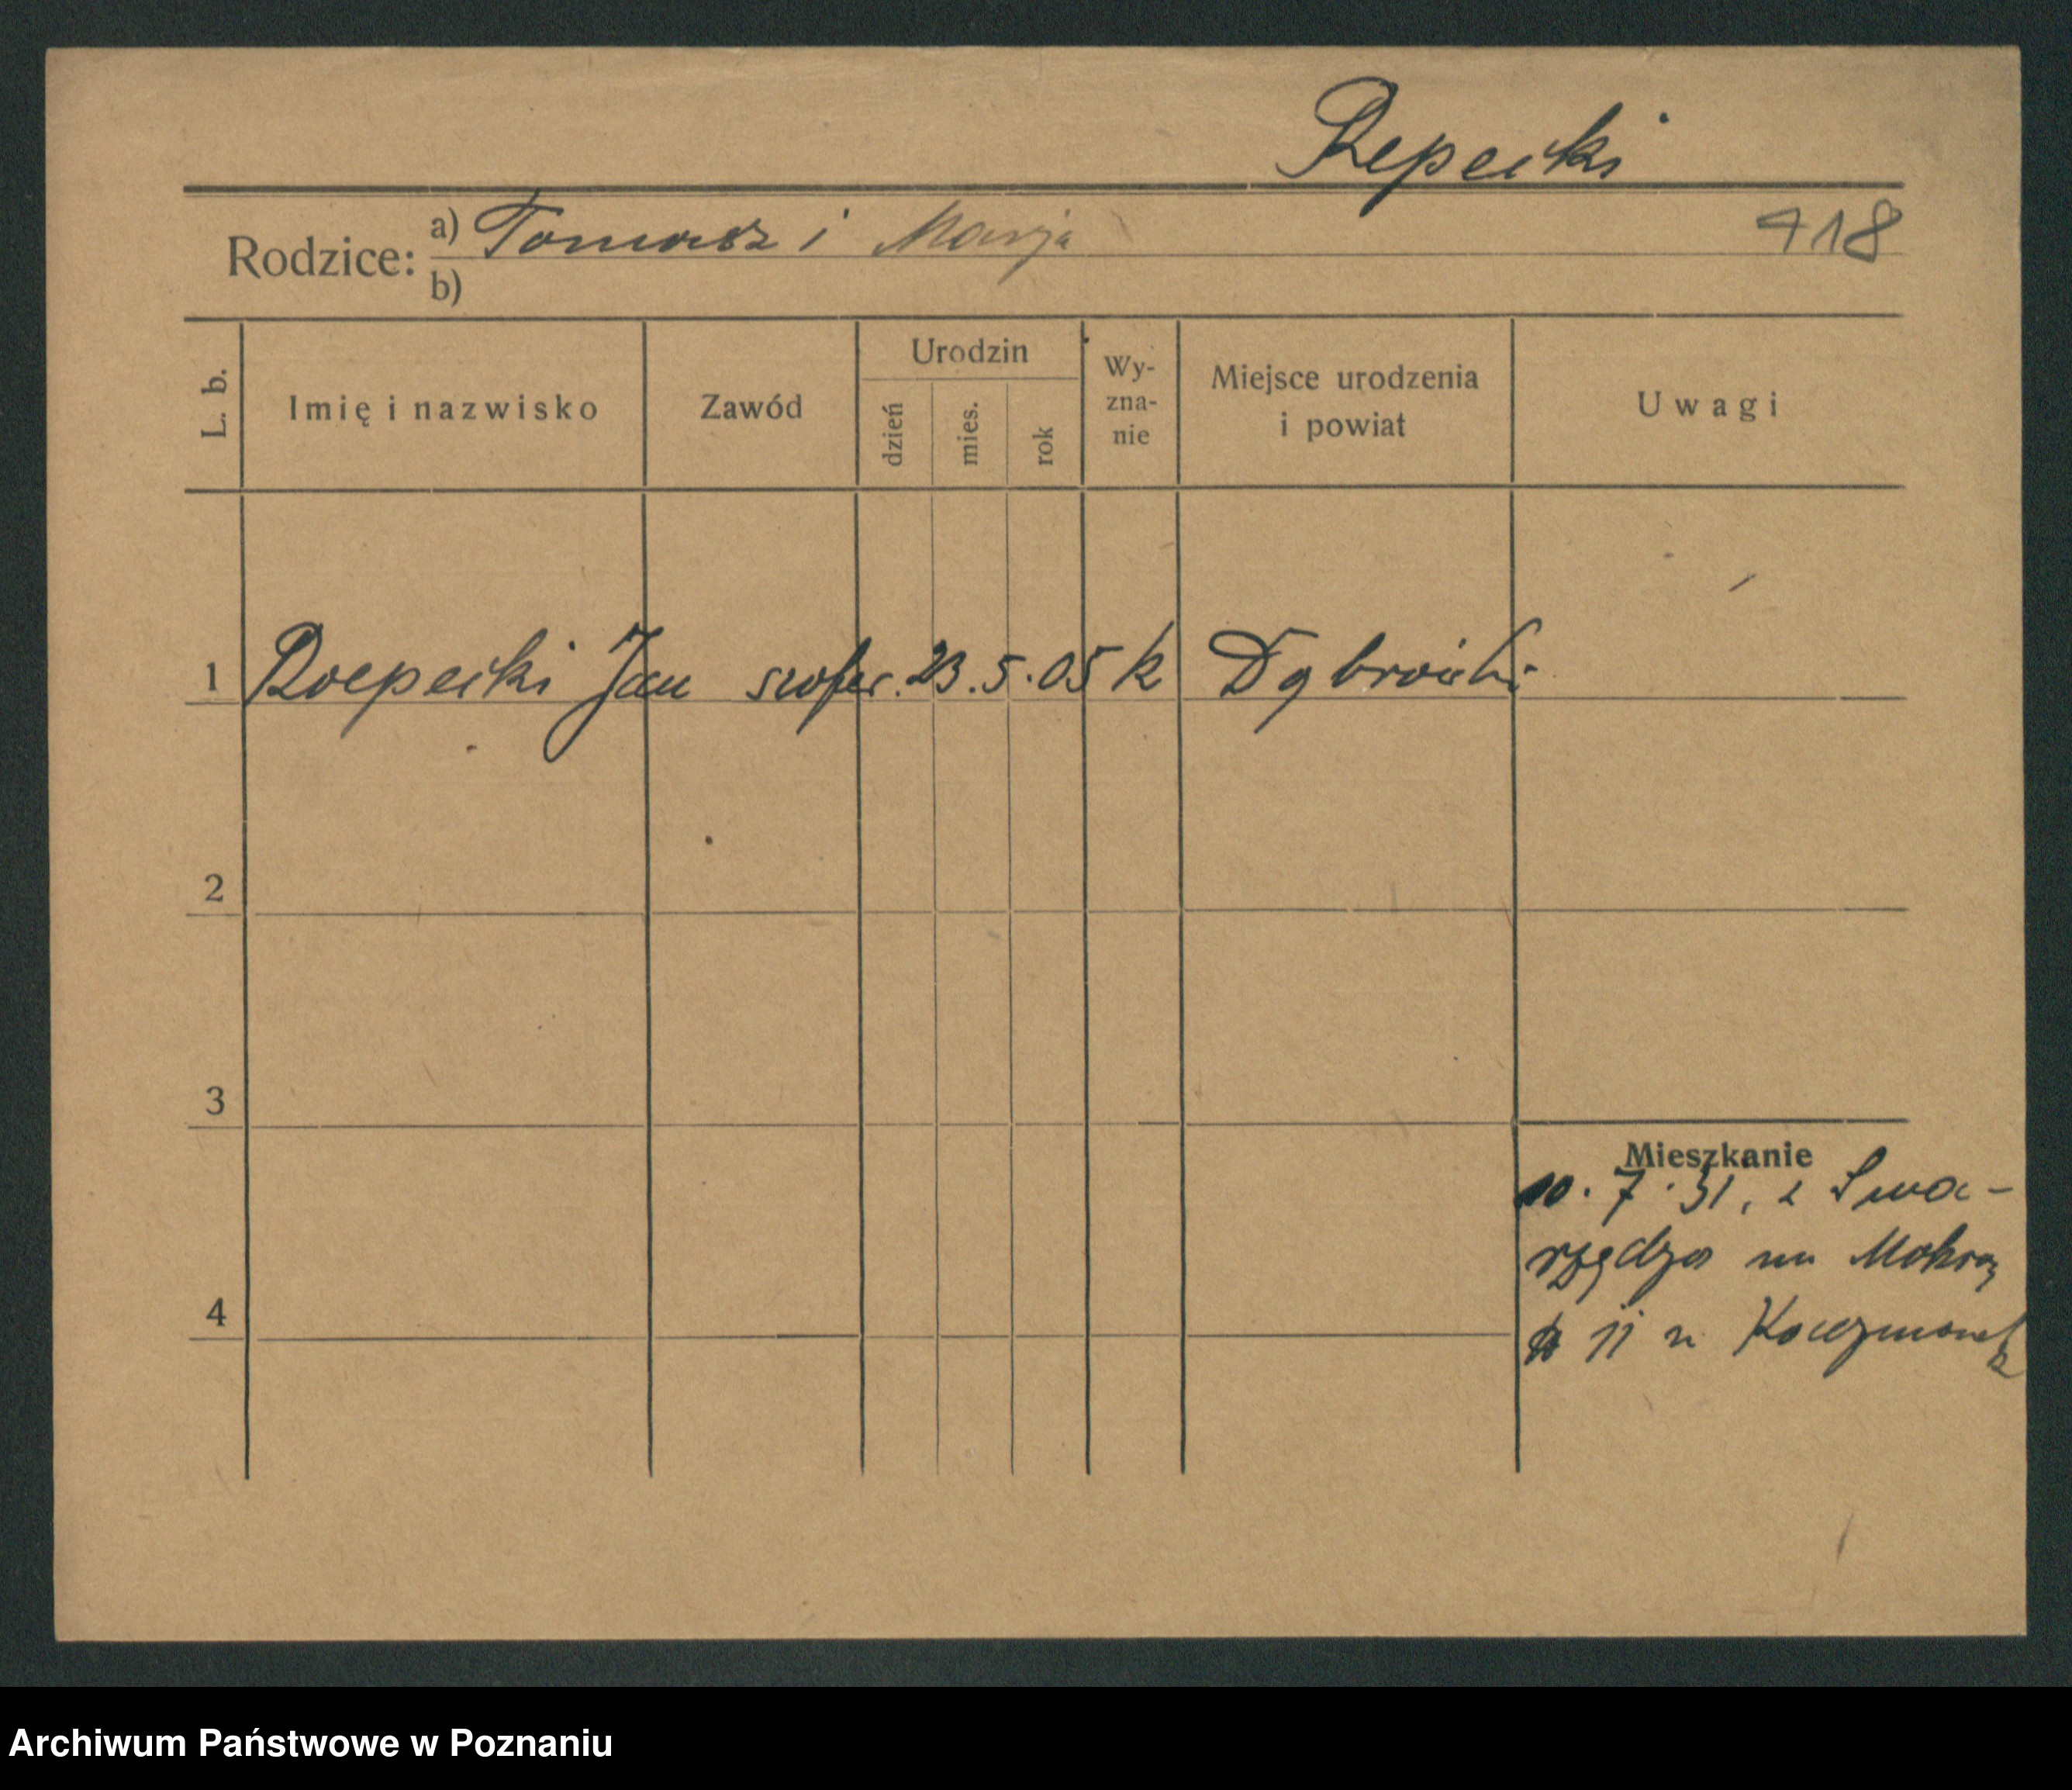 Repecki
Rodzice: a) Tomasz i Marja 418
b)
L. b. Imię i nazwisko Zawód Urodzin dzień mies. rok Wy-zna-nie Miejsce urodzenia i powiat Uwagi
1 Rzepecki Jan szofer. 23.5.05 k
2
3
Mieszkanie
10.7.31, z Swa-
rzędza na Mokrą
4
11 u Kaczmarek
Archiwum Państwowe w Poznaniu